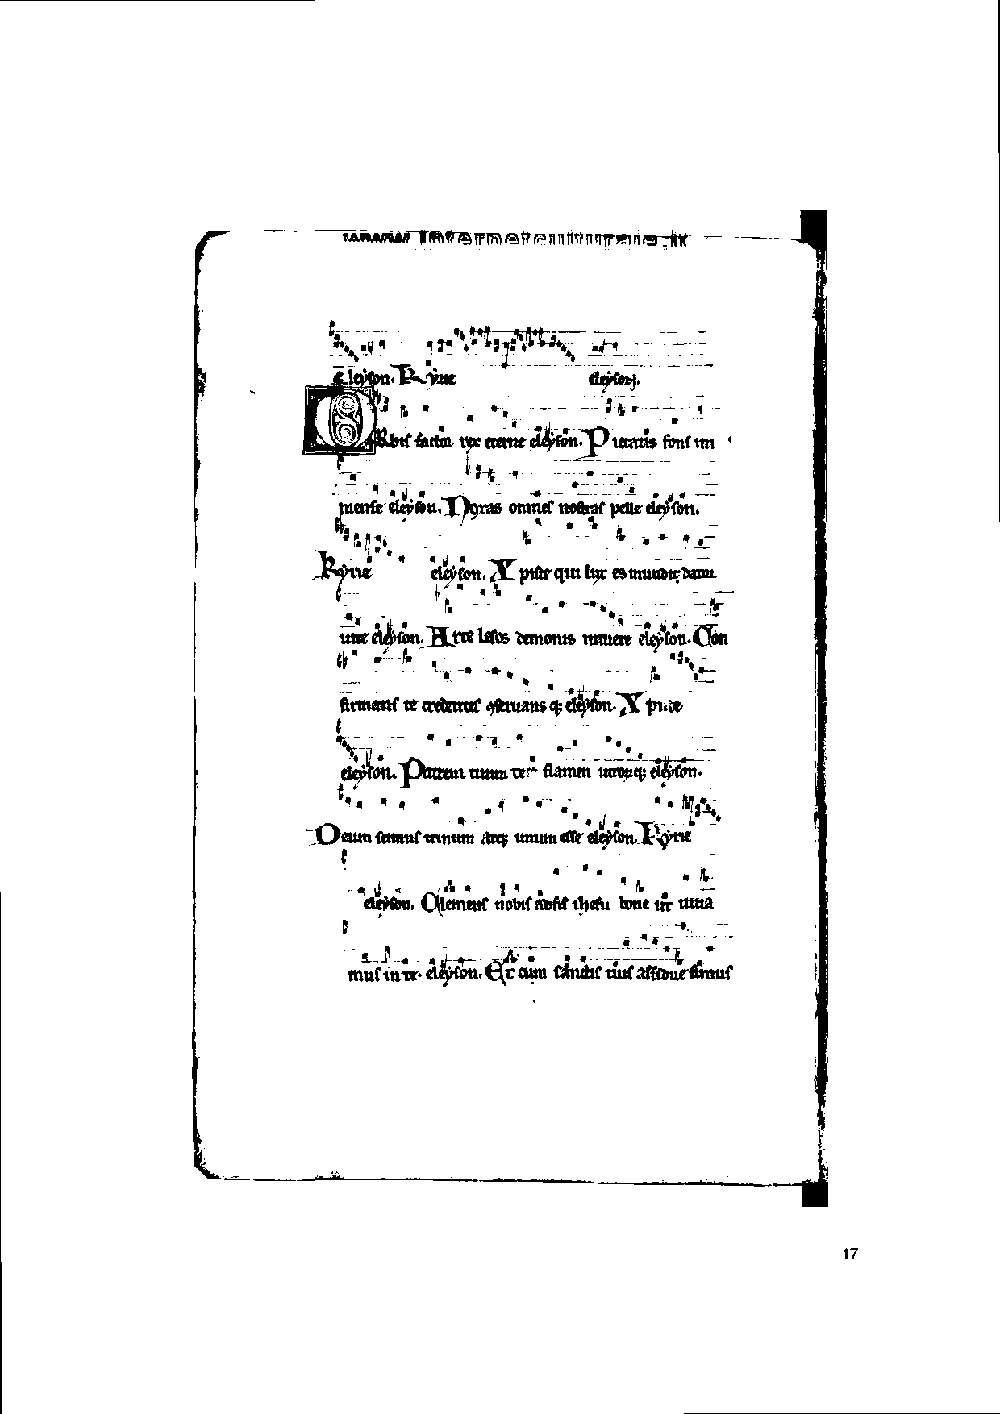 www.internetculturale.it
eleyson. Kyrie eleyson.
Orbis factor rex eterne eleyson. Pietatis fons im
mense eleyson. Noxas omnes nostras pelle eleyson.
Kyrie eleyson. Xpiste qui lux es mundi dator
vite eleyson. Arte lesos demonis intuere eleyson. Con
firmans te credentes conseruans q; eleyson. Xpiste
eleyson. Patrem tuum te flamen utrorq; eleyson.
Deum scimus trinum atq; unum esse eleyson. Kyrie
eleyson. Clemens nobis adsis ihesu bone ut viua
mus in te. eleyson. Et cum sanctis tuis assidue simus
17